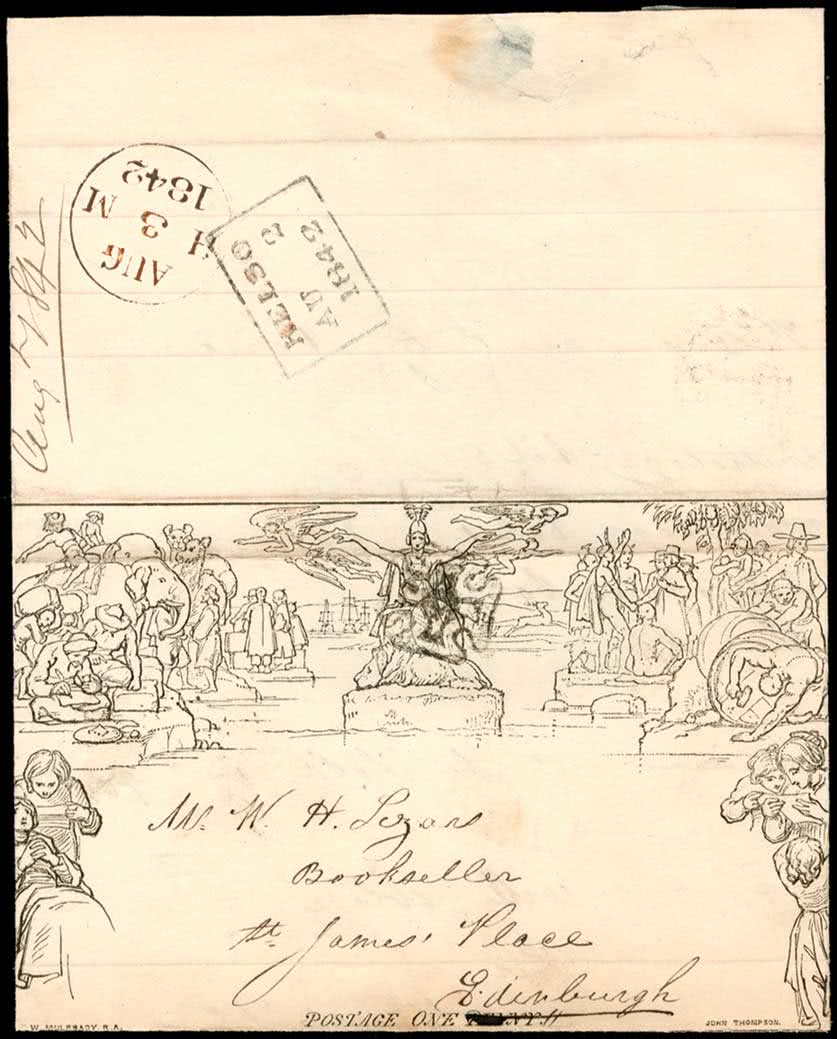 AUG
H 3 M
1842
KELSO
AU 2
1842
Augt 1842
Mr. W. H. Lizars
Bookseller
St. James' Place
Edinburgh
POSTAGE ONE PENNY.
W. MULREADY. R.A.
JOHN THOMPSON.